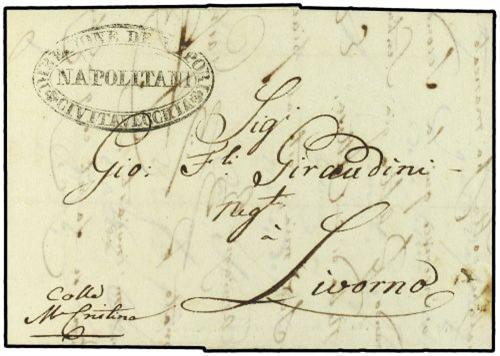 DIREZIONE DE VAPORI
NAPOLITANI
CIVITAVECCHIA
Sig.
Gio: F.
Giraudini
negt.
à
Livorno
Colla
Ma Cristina